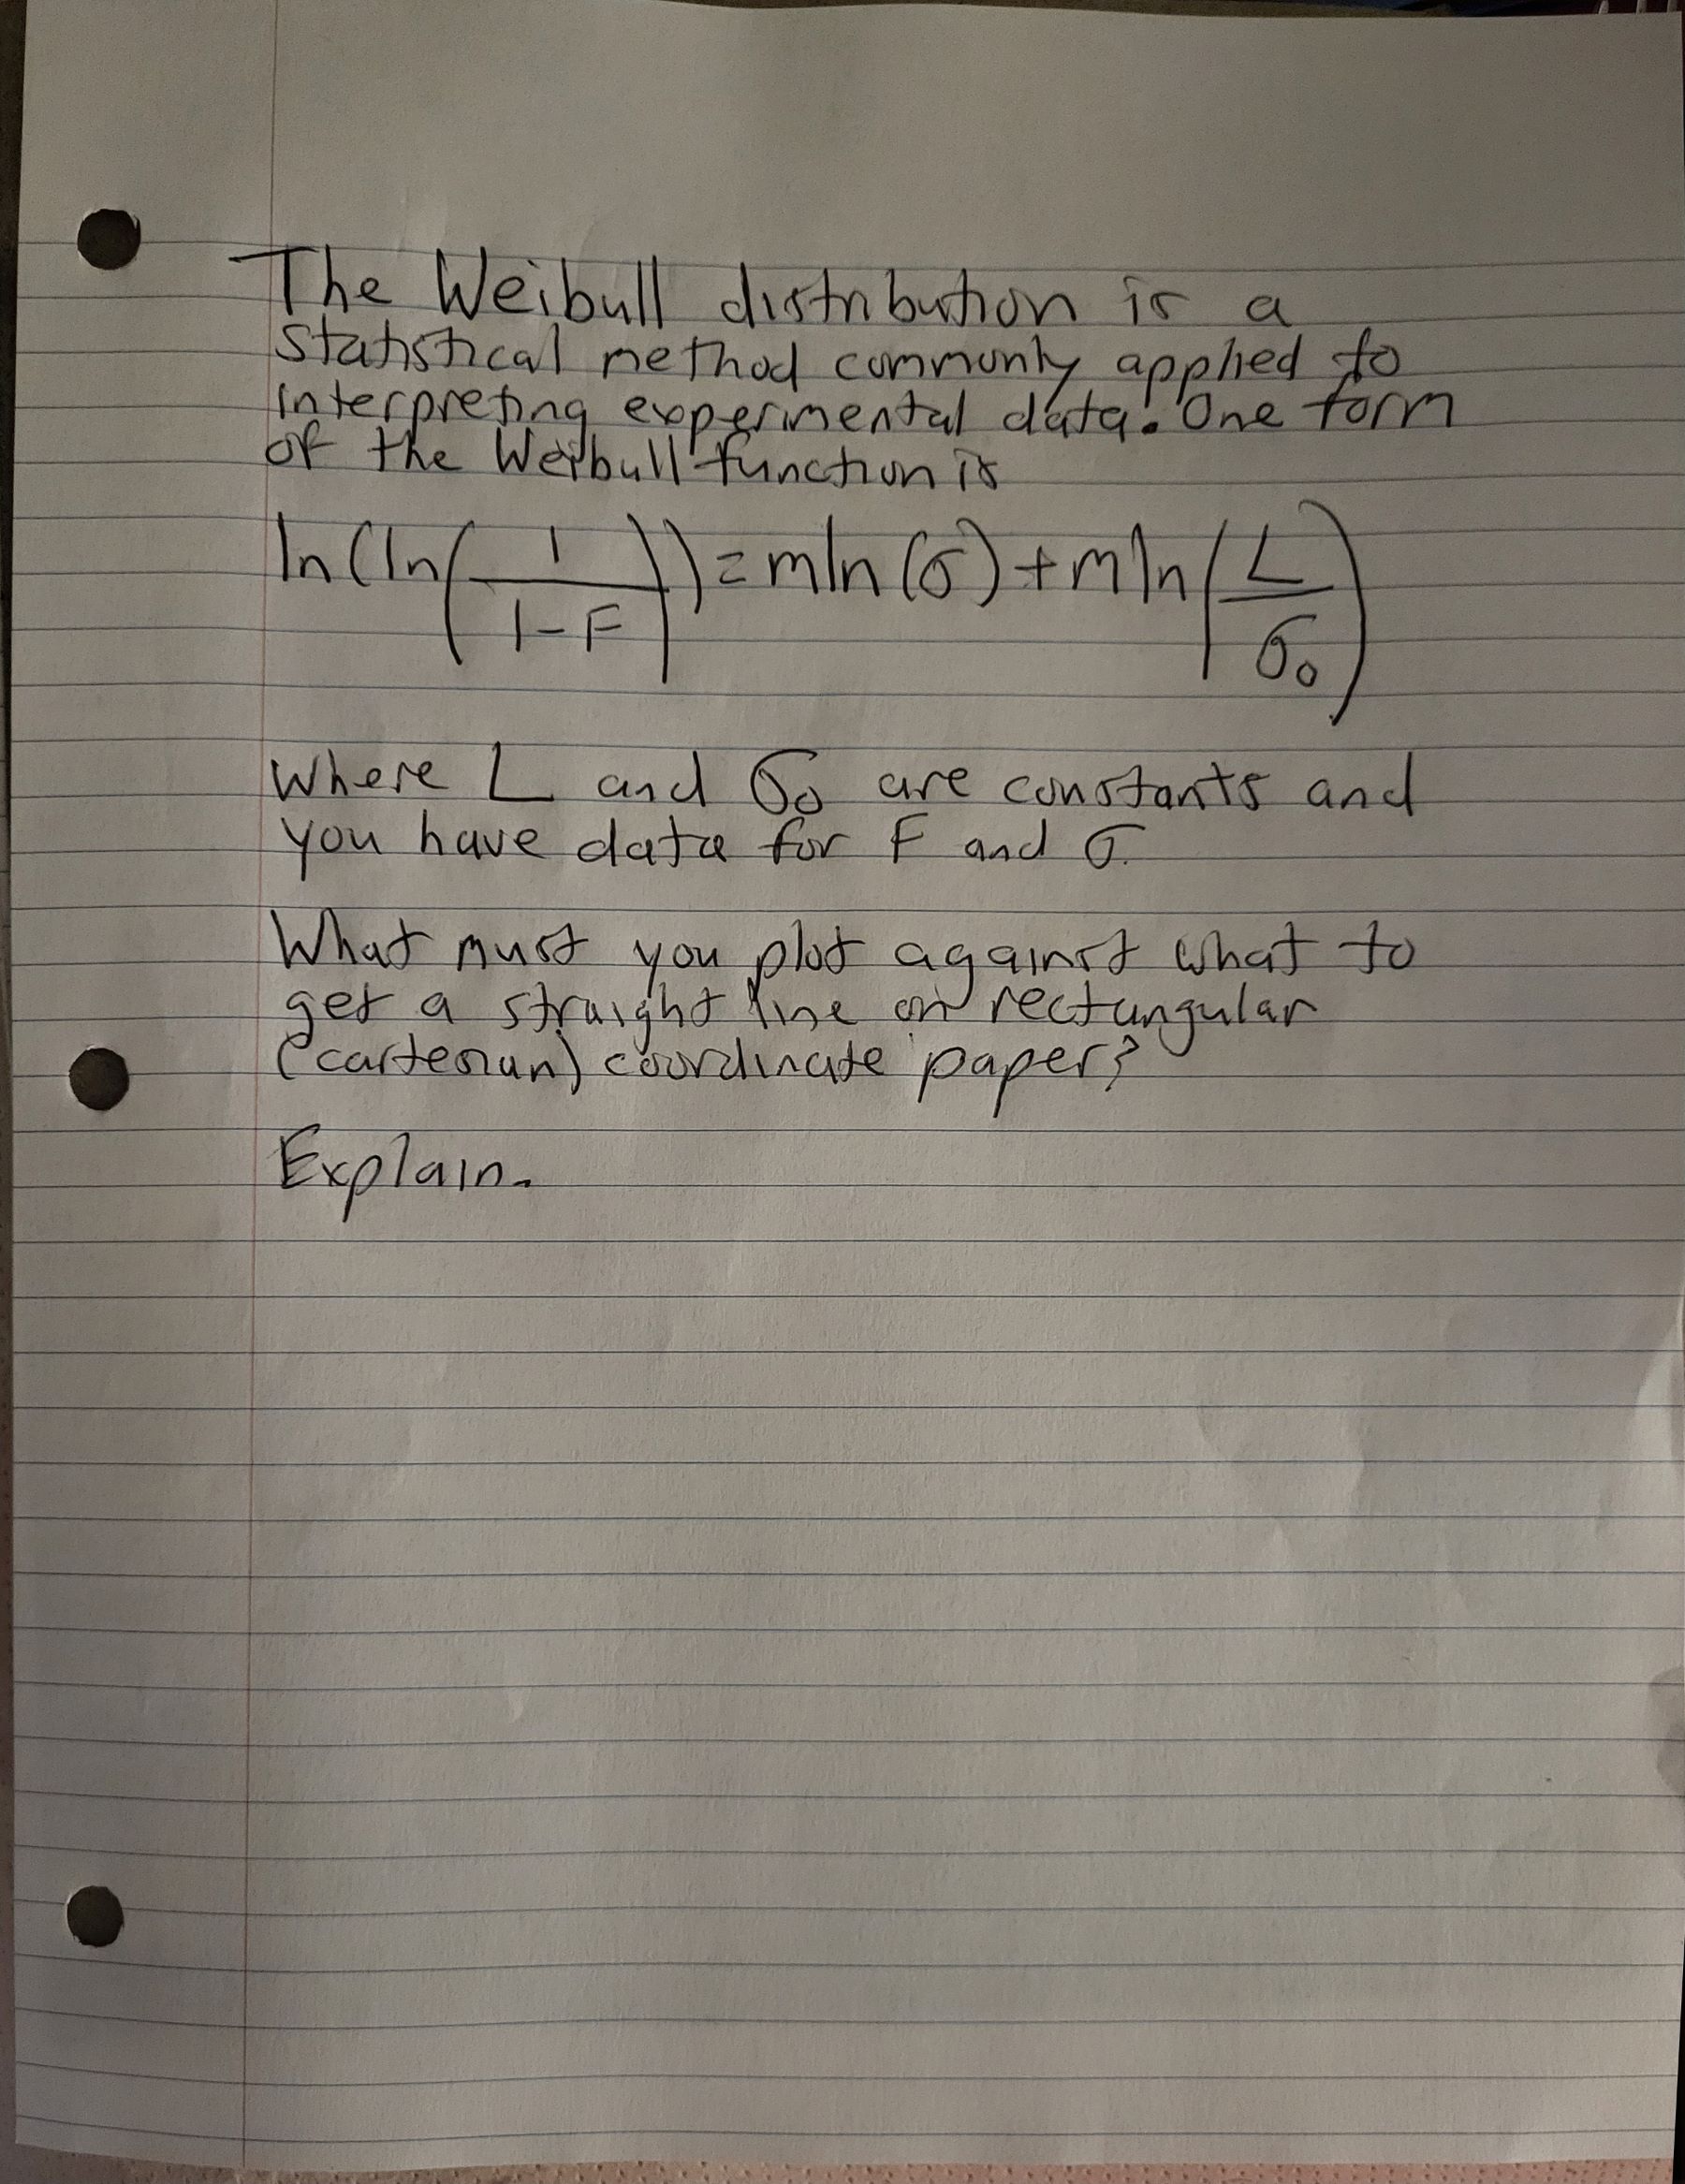 The Weibull distribution is a
statistical method commonly applied to
interpreting experimental data. One form
of the Weibull function is
ln(ln(1/(1-F))) = m ln(σ) + m ln(L/σ₀)
where L and σ₀ are constants and
you have data for F and σ.
What must you plot against what to
get a straight line on rectangular
(cartesian) coordinate paper?
Explain.